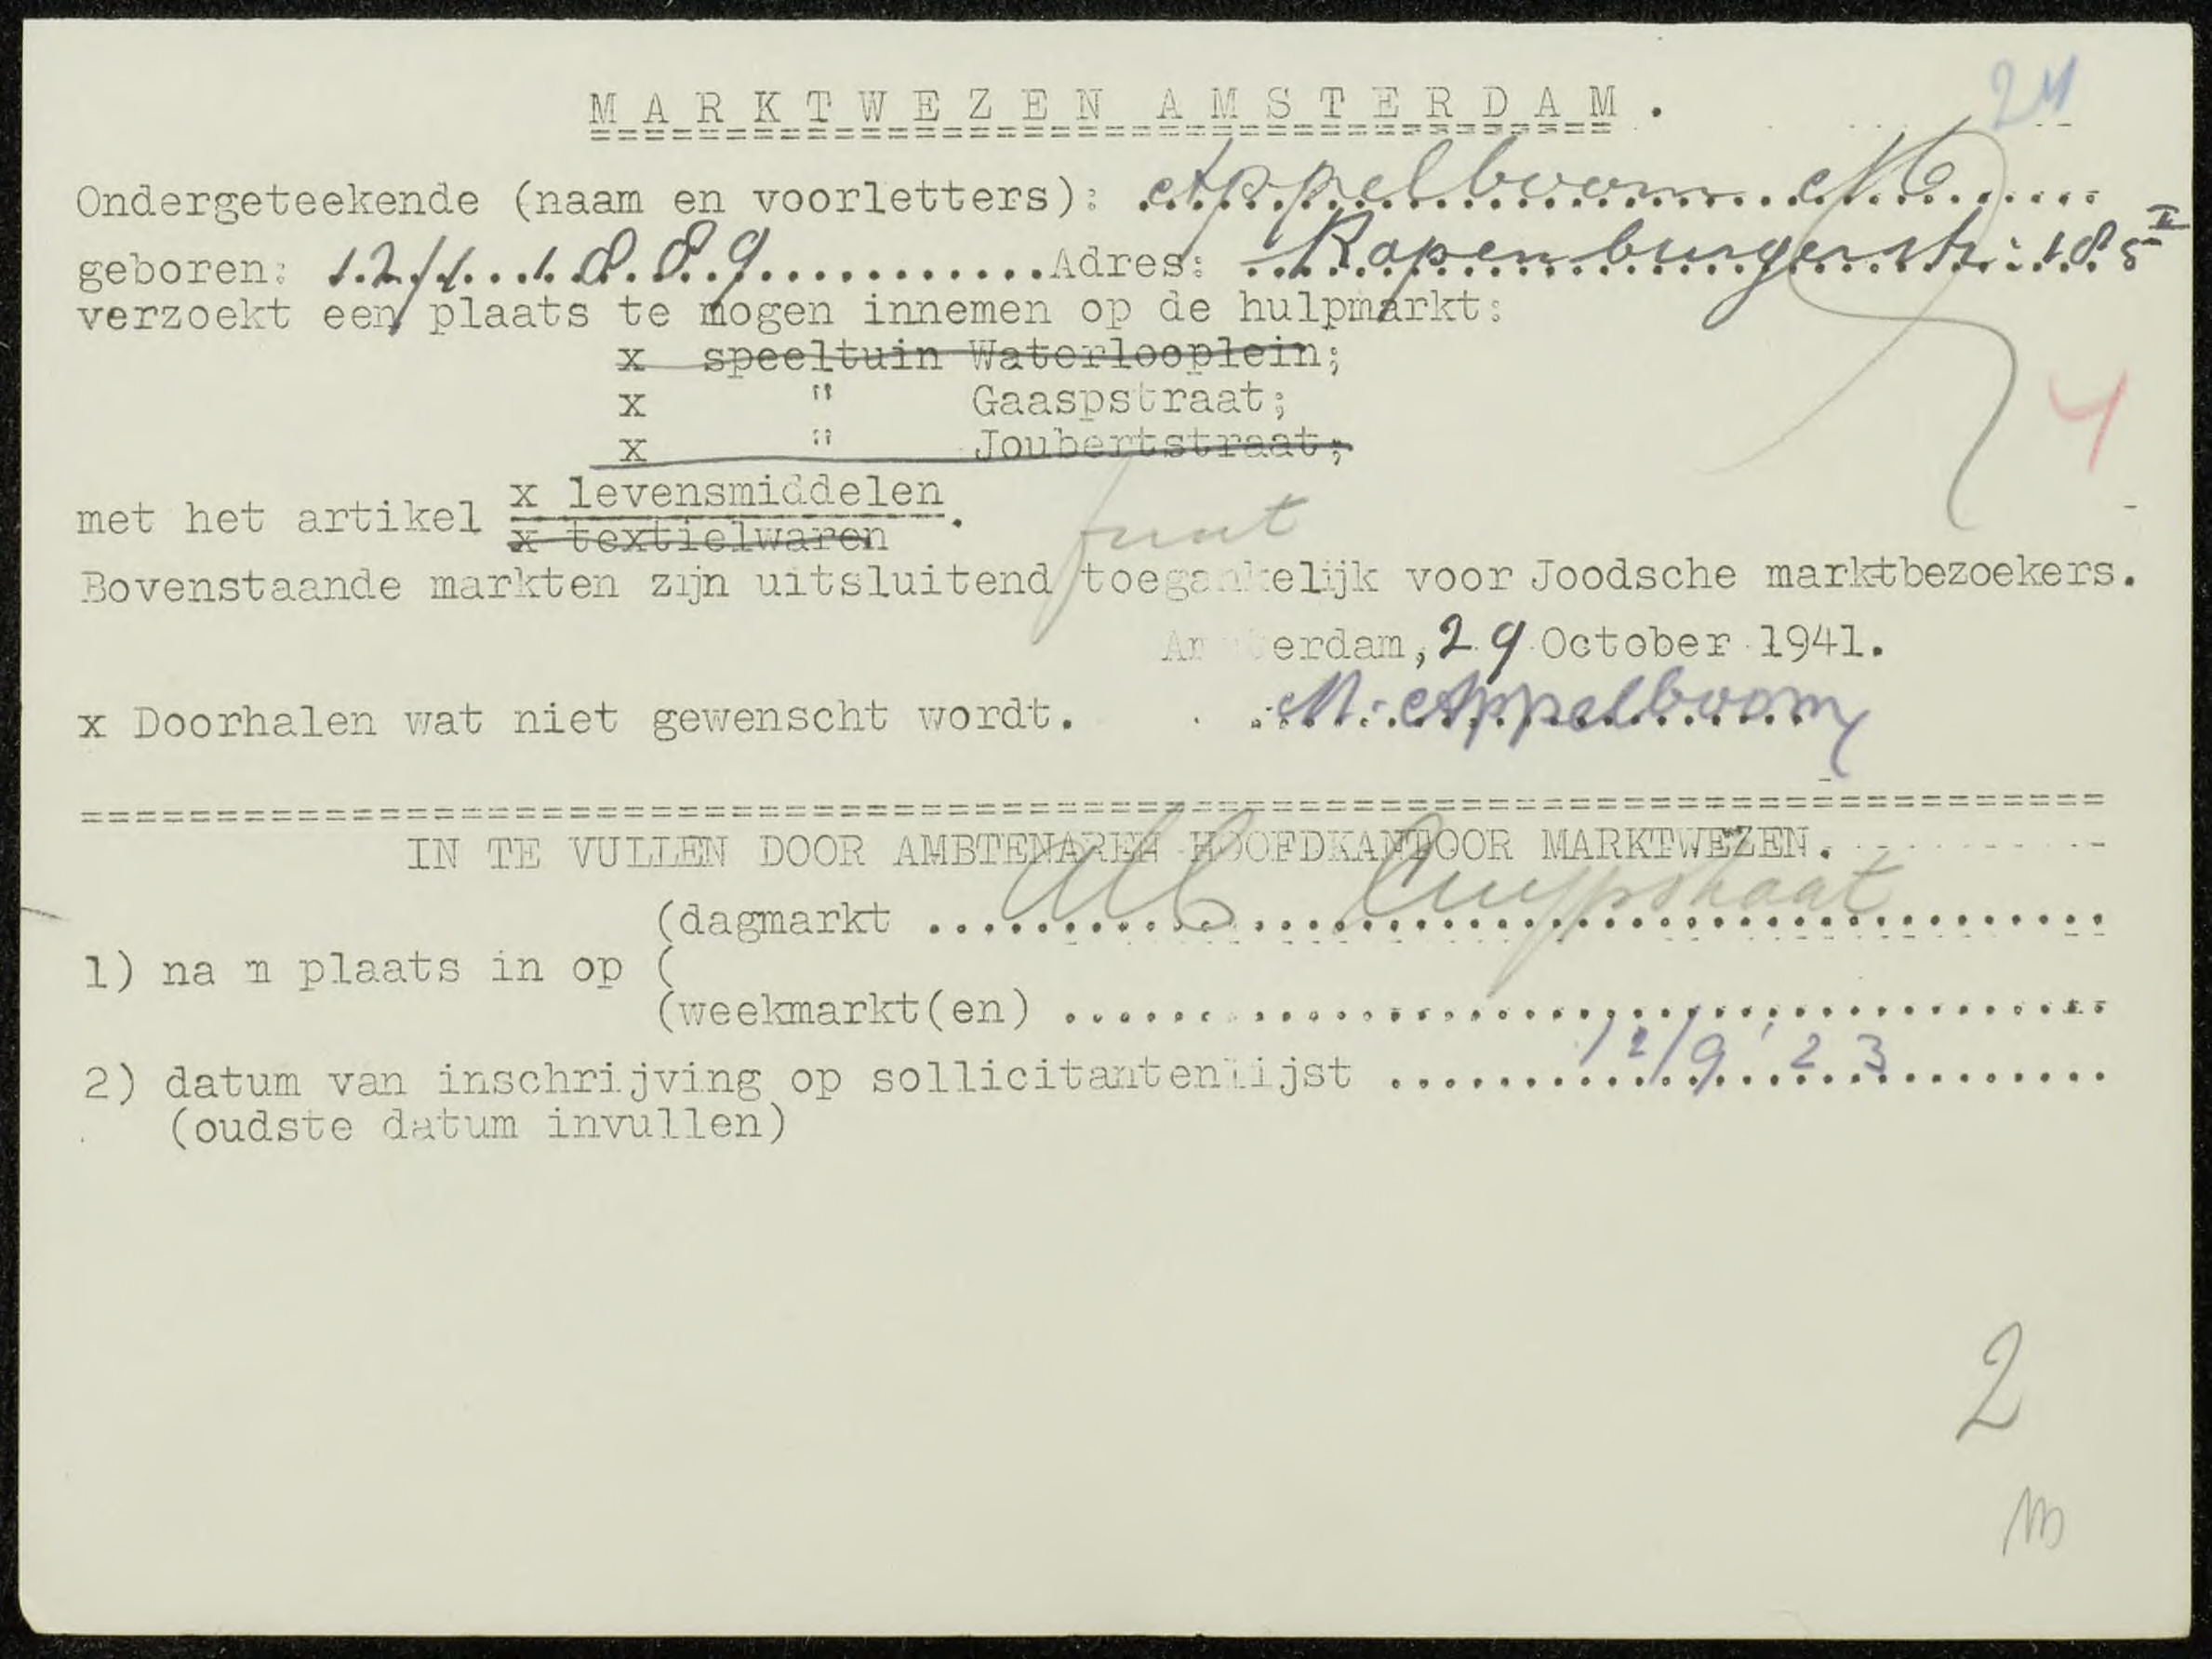 24
MARKTWEZEN AMSTERDAM.
Ondergeteekende (naam en voorletters): Appelboom M
geboren: 12/1 1889 Adres: Rapenburgerstr: 185 II
verzoekt een plaats te mogen innemen op de hulpmarkt:
x speeltuin Waterlooplein;
x " Gaaspstraat;
x " Joubertstraat;
4
met het artikel x levensmiddelen
x textielwaren.
fruit
Bovenstaande markten zijn uitsluitend toegankelijk voor Joodsche marktbezoekers.
Amsterdam, 29 October 1941.
x Doorhalen wat niet gewenscht wordt. M. Appelboom
IN TE VULLEN DOOR AMBTENAREN HOOFDKANTOOR MARKTWEZEN.
(dagmarkt Alb Cuypstraat
1) na m plaats in op (
(weekmarkt(en)
2) datum van inschrijving op sollicitantenlijst 12/9 '23
(oudste datum invullen)
2